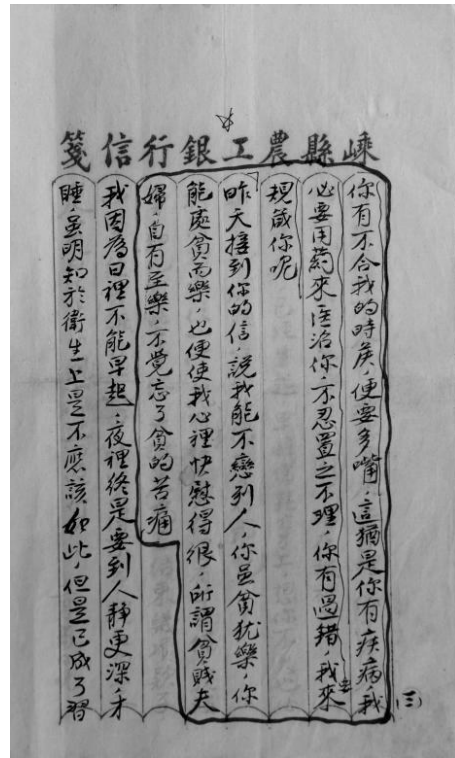 嵊縣農工銀行信箋
(三)
你有不合我的時候,便要多嘴,這猶是你有疾病,我
必要用葯來医治你,不忍置之不理,你有過錯,我要來
規箴你呢
昨天接到你的信,說我能不戀到人,你虽貧犹樂,你
能處貧而樂,也便使我心裡快慰得很,所謂貧賤夫
婦,自有至樂,不覺忘了貧的苦痛
我因為日裡不能早起,夜裡終是要到人靜更深,才
睡,虽明知於衛生上是不應該如此,但是已成了習